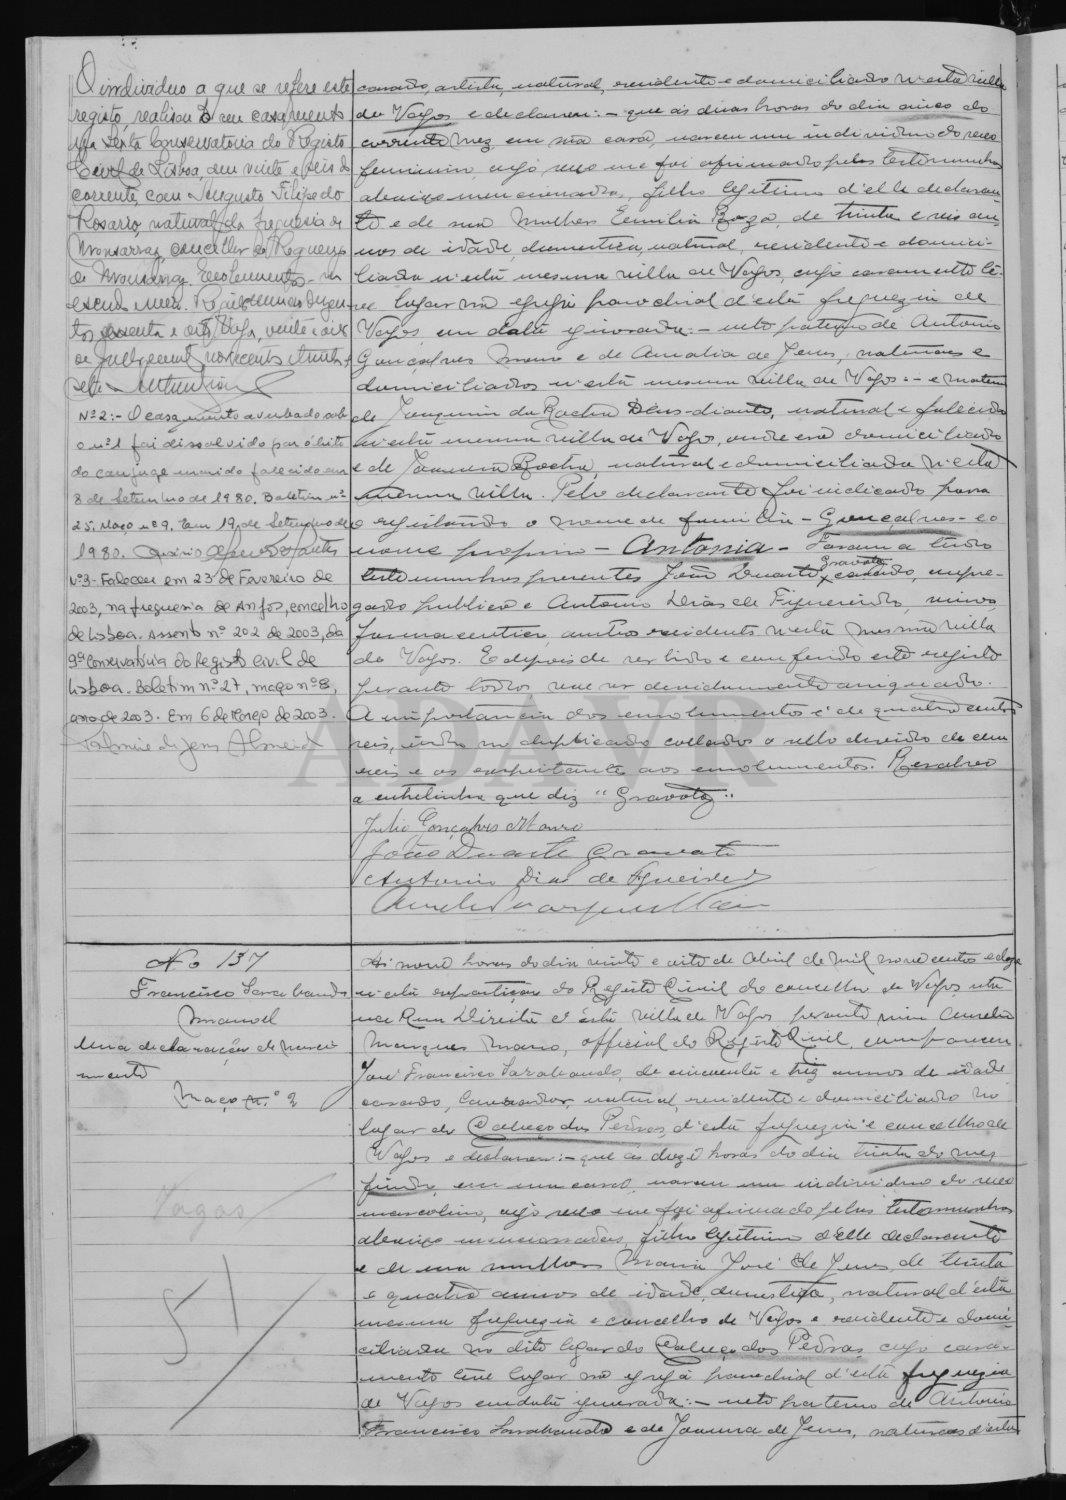 O individuo a que se refere este
registo, realisou o seu casamento
na sexta Conservatoria do Registo
Civil de Lisboa, em vinte e seis do
corrente, com Augusto Filipe do
Rosario, natural da freguesia de
Monsarraz, concelho de Reguengos
de Monsaraz. Emolumentos - um
escudo
Vagos, vinte e
novecentos e trinta e
sete
Nº2:- O casamento averbado sob
o nº1 foi dissolvido por óbito
do conjuge marido falecido em
8 de Setembro de 1980. Boletim nº
25, Maço nº9. Em 19 de Setembro de
1980.
Nº3- Faleceu em 23 de Fevereiro de
2003, na freguesia de Anjos, concelho
de Lisboa. Assento nº 202 de 2003, da
9ª Conservatória do Registo Civil de
Lisboa. Boletim nº27, maço nº8,
ano de 2003. Em 6 de Março de 2003.
de Jesus Almeida
casado, artista, natural, residente e domiciliado n'esta villa
de Vagos e declarou:- que ás duas horas do dia cinco do
corrente mez, em sua casa, nasceu um individuo do sexo
feminino, cujo sexo me foi afirmado pelas testemunhas
abaixo mencionadas, filho legitimo d'elle declaran
te e de sua mulher Emilia Roza, de trinta e seis an-
nos de idade, domestica, natural, residente e domici-
liada n'esta mesma villa de Vagos, cujo casamento te-
ve lugar na egreja parochial d'esta freguezia de
Vagos, em data ignorada:- neto paterno de Antonio
Gonçalves Mauro e de Amalia de Jesus, naturaes e
domiciliados n'esta mesma villa de Vagos:- e materno
de Joaquim da Rocha Deus-diante, natural e falecido
n'esta mesma villa de Vagos, onde era domiciliado
e de Joanna Rocha, natural e domiciliada n'esta
mesma villa. Pelo declarante foi indicado para
o registando o nome de familia - Gonçalves - e o
nome proprio - Antonia - Foram a tudo
Gravato
testemunhas presentes João Duarte casado, empre-
gado publico e Antonio Dias de Figueiredo, viuvo,
farmaceutico, ambos residentes n'esta mesma villa
de Vagos. E depois de ser lido e conferido este registo
perante todos, vae ser devidamente assignado.
A importancia dos emolumentos é de quatro centos
reis, indo no duplicado collados o sello devido de cem
reis e os respeitantes aos emolumentos. Resalvo
a entrelinha que diz "Gravato"
Julio Gonçalves Mauro
João Duarte Gravato
Antonio Dias de Figueiredo
ADAVR
No 137
Francisco Sarabando
Manoel
Uma declaração de nasci
mento
Maço n.º 2
Vagos
51
Ás nove horas do dia vinte e oito de Abril de mil nove centos e doze
n'esta repartição do Registo Civil do concelho de Vagos, sita
na Rua Direita d'esta villa de Vagos perante mim Aurelio
Marques Mano, official do Registo Civil, compareceu
José Francisco Sarabando, de cincoenta e trez annos de idade
casado, lavrador, natural, residente e domiciliado no
lugar do Cabeço das Pedras, d'esta freguezia e concelho de
Vagos e declarou:- que ás doze horas do dia trinta do mez
findo, em sua casa, nasceu um individuo do sexo
masculino, cujo sexo me foi afirmado pelas testemunhas
abaixo mencionadas, filho legitimo d'elle declarante
e de sua mulher Maria José de Jesus, de trinta
e quatro annos de idade, domestica, natural d'esta
mesma freguezia e concelho de Vagos e residente e domi-
ciliada no dito lugar do Cabeço das Pedras, cujo casa-
mento teve lugar na egreja parochial d'esta freguezia
de Vagos em data ignorada:- neto paterno de Antonio
Francisco Sarabando e de Joanna de Jesus, naturaes d'esta